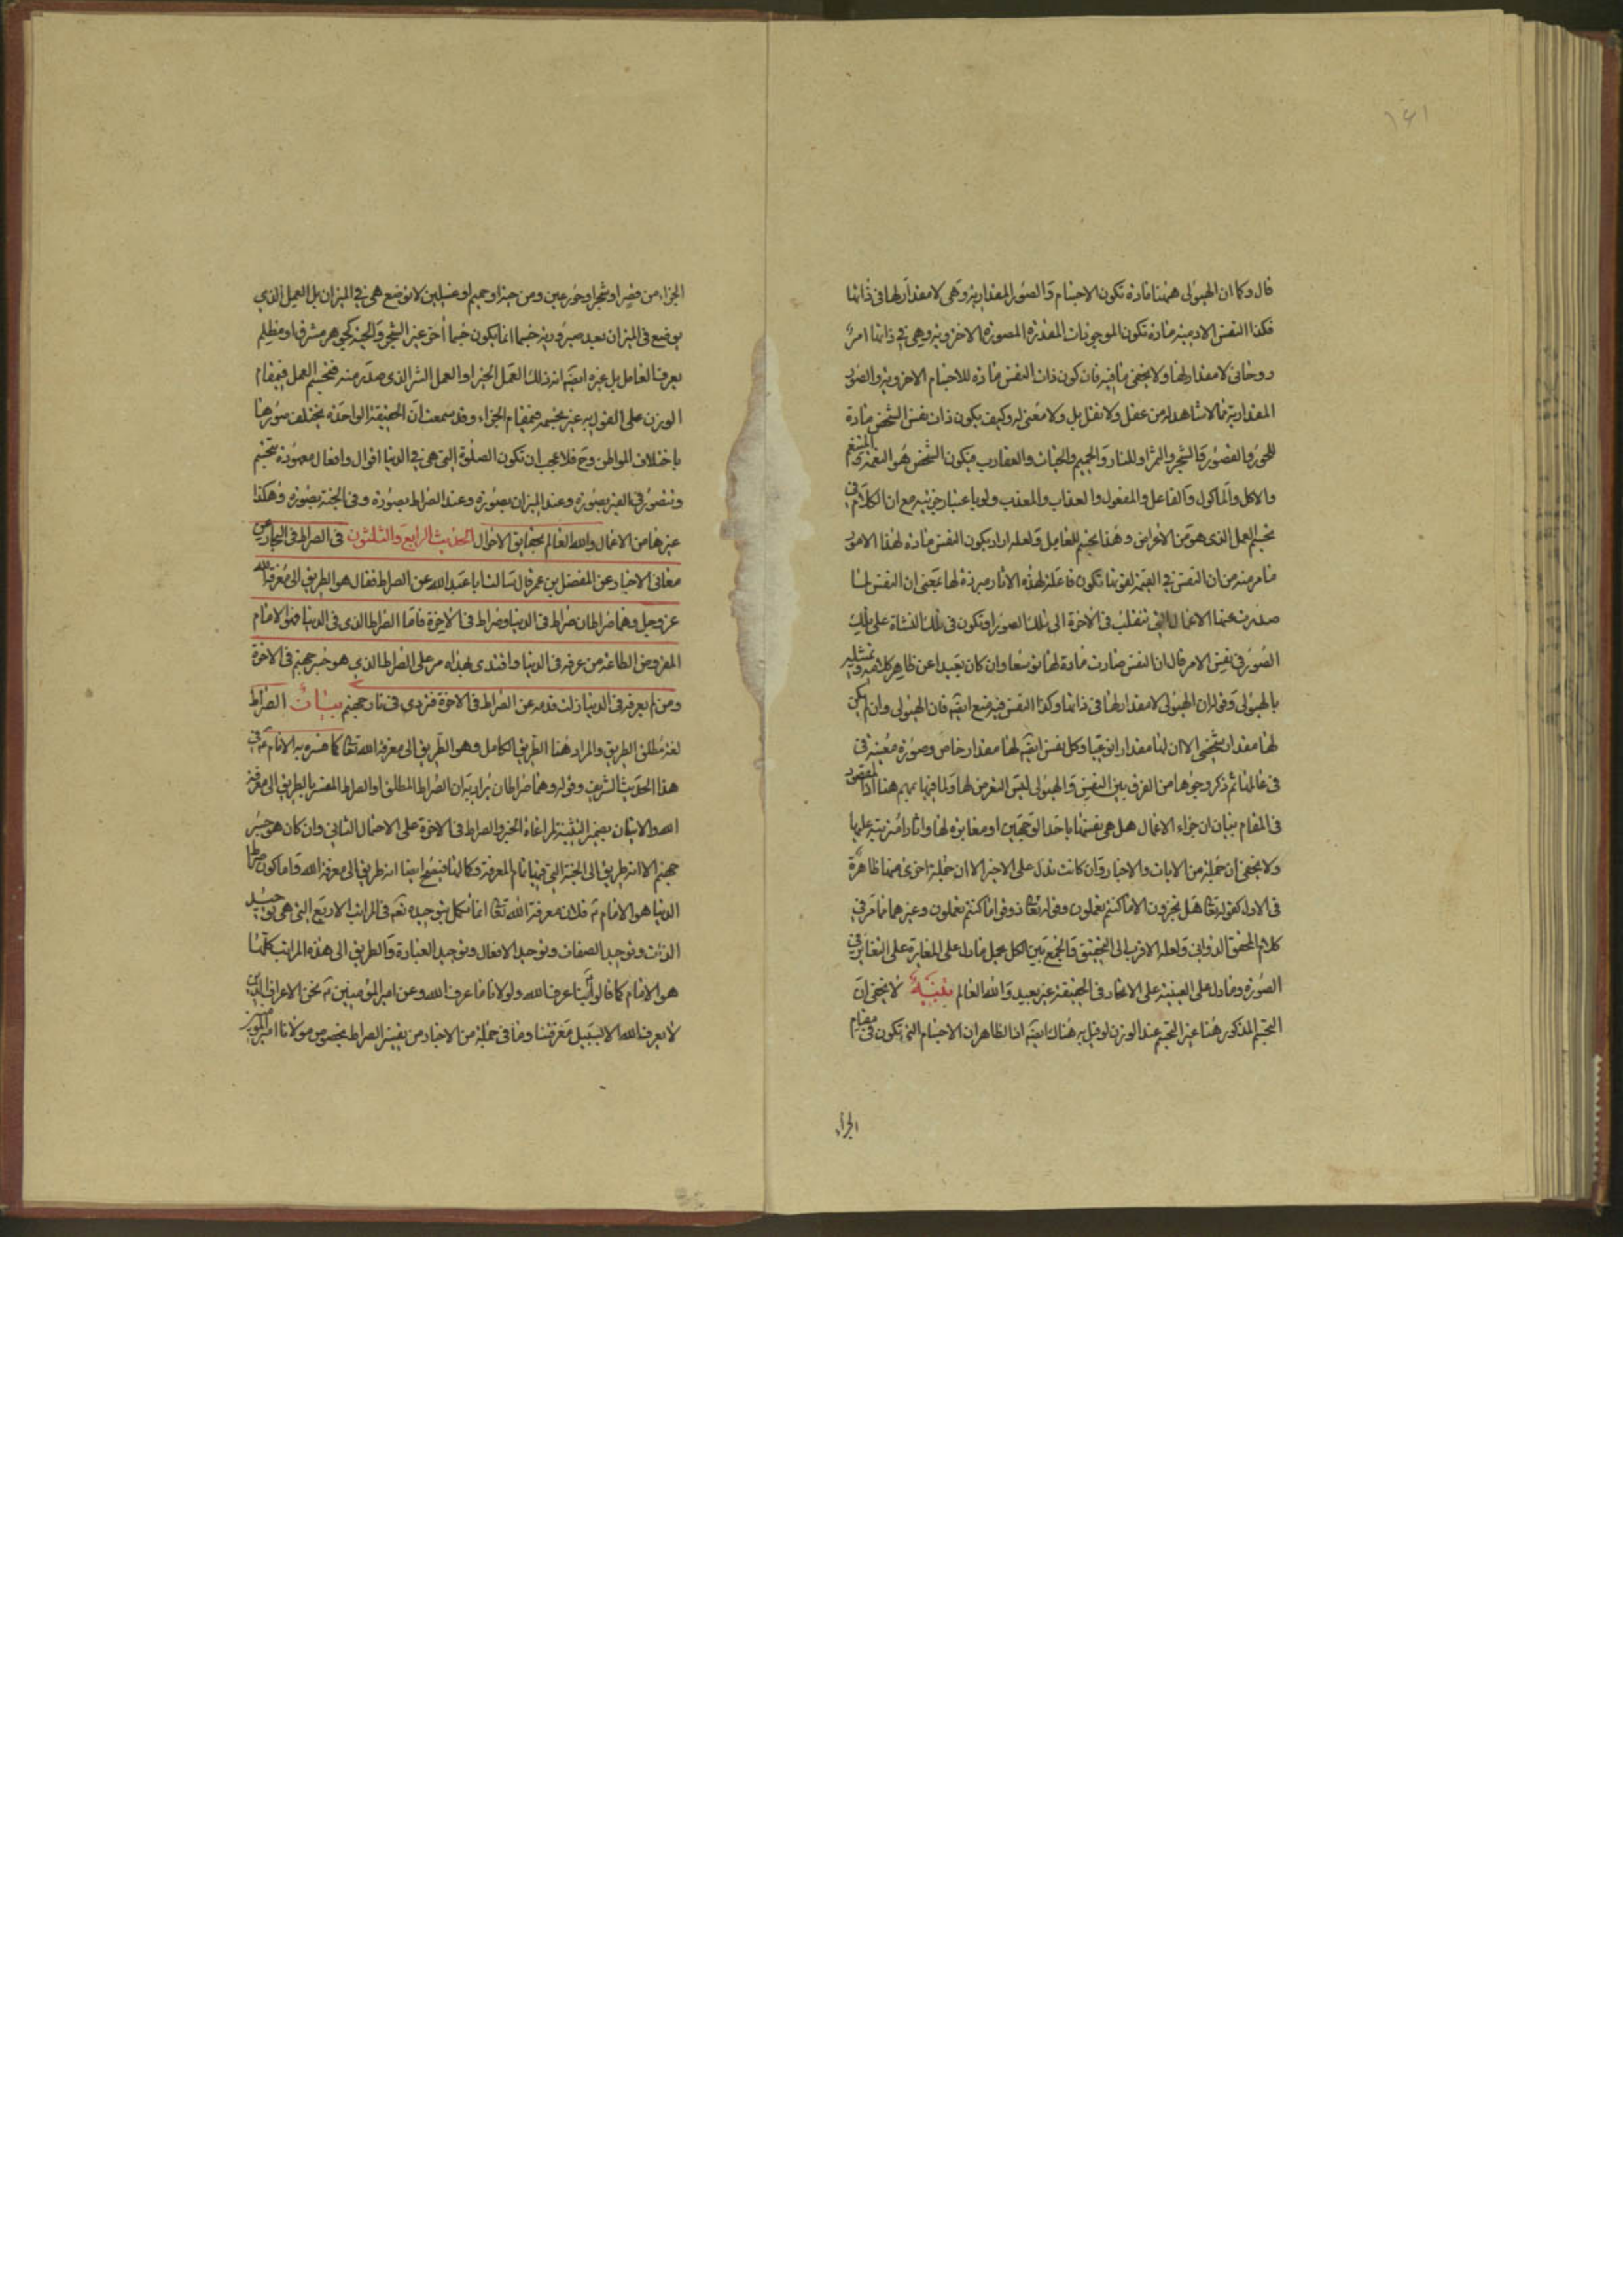 ١٤١
قال وكما ان الهيولى ههنا مادة تكون الاجسام والصور المقدارية وهى لا مقدار لها فى ذاتها
فكذا النفس الادمية مادة تكون الموجودات المقدرة المصورة الاخروية وهى فى ذاتها امر
روحانى لا مقدار لها ولا يخفى ما فيه فان كون ذات النفس مادة للاجسام الاخروية والصور
المقدارية مما لا شاهد له من عقل ولا نقل بل ولا معنى له وكيف يكون ذات نفس الشخص مادة
للحور والقصور والشجر والثمر او للنار والجحيم والحيات والعقارب فيكون الشخص هو المتنعم
والاكل والماكول والفاعل والمفعول والعذاب والمعذب ولو باعتبار جزئيه مع ان الكلام فى
تجسم العمل الذى هو من الاعراض وهذا تجسم للعامل ولعله اراد بكون النفس مادة لهذا الامور
ما مر منه من ان النفس فى القيمة لقوتها تكون فاعلة لهذه الاثار مبرزة لها يعنى ان النفس لما
صدرت عنها الاعمال التى تنقلب فى الاخرة الى تلك الصور او تكون فى تلك النشاة على تلك
الصور فى نفس الامر قال ان النفس صارت مادة لها توسعا وان كان بعيدا عن ظاهر كلامه وتمثيله
بالهيولى وقوله ان الهيولى لا مقدار لها فى ذاتها وكذا النفس فيه منع ايضا فان الهيولى وان لم يكن
لها مقدار شخصى الا ان لها مقدار نوعيا وكل نفس ايضا لها مقدار خاص وصورة معينة فى
فى عالمها ثم ذكر وجوها من الفرق بين النفس والهيولى ليس التعرض لها ولما فيها بمهم هنا اذ المقصود
فى المقام بيان ان جزاء الاعمال هل هى نفسها باحد الوجهين او مغايرة لها واثار مترتبة عليها
ولا يخفى ان جملة من الايات والاخبار وان كانت تدل على الاخير الا ان جملة اخرى منها ظاهرة
فى الاول كقوله تعالى هل تجزون الا ما كنتم تعملون وقوله تعالى ذوقوا ما كنتم تعملون وغيرهما مما مر فى
كلام المحقق الدوانى ولعله الاقرب الى التحقيق والجمع بين الكل بحمل ما دل على المغايرة على التغاير فى
الصورة وما دل على العينية على الاتحاد فى الحقيقة غير بعيد والله العالم تنبيه لا يخفى ان
التجسم المذكور هنا غير التجسم عند الوزن لو قيل به هناك ايضا اذ الظاهر ان الاجسام التى تكون فى مقام
الجزاء
الجزاء من قصر او شجر او حور عين ومن حية او حميم او غسلين لا توضع هى فى الميزان بل العمل الذى
يوضع فى الميزان بعد صيرورته جسما انما يكون جسما آخر غير الشجر والحية كجوهر مشرق او مظلم
يعرف العامل بل غيره ايضا انه ذلك العمل الخير او العمل الشر الذى صدر منه فتجسم العمل فى مقام
الوزن على القول به غير تجسمه فى مقام الجزاء وقد سمعت ان الحقيقة الواحدة تختلف صورها
باختلاف المواطن وح فلا عجب ان تكون الصلوة التى هى فى الدنيا اقوال وافعال معهودة تتجسم
وتتصور فى القبر بصورة وعند الميزان بصورة وعند الصراط بصورة وفى الجنة بصورة وهكذا
غيرها من الاعمال والله العالم بحقايق الاحوال الحديث الرابع والثلثون فى الصراط فى البحار عن
معانى الاخبار عن المفضل بن عمر قال سالت ابا عبد الله عن الصراط فقال هو الطريق الى معرفة الله
عز وجل وهما صراطان صراط فى الدنيا وصراط فى الاخرة فاما الصراط الذى فى الدنيا فهو الامام
المفروض الطاعة من عرفه فى الدنيا واقتدى بهداه مر على الصراط الذى هو جسر جهنم فى الاخرة
ومن لم يعرفه فى الدنيا زلت قدمه عن الصراط فى الاخرة فتردى فى نار جهنم بيان الصراط
لغة مطلق الطريق والمراد هنا الطريق الكامل وهو الطريق الى معرفة الله تعالى كما فسره به الامام ع فى
هذا الحديث الشريف وقوله وهما صراطان يراد به ان الصراط المطلق او الصراط المفسر بالطريق الى معرفة
الله والاتيان بضمير التثنية لمراعاة الخبر والصراط فى الاخرة على الاحتمال الثانى وان كان هو جسر
جهنم الا انه طريق الى الجنة التى فيها تمام المعرفة وكمالها فيصح ايضا انه طريق الى معرفة الله واما كون صراط
الدنيا هو الامام ع فلان معرفة الله تعالى انما تكمل بتوحيده تعه فى المراتب الاربع التى هى توحيد
الذات وتوحيد الصفات وتوحيد الافعال وتوحيد العبادة والطريق الى هذه المراتب كلها
هو الامام كما قالوا بنا عرف الله ولولانا ما عرف الله وعن امير المؤمنين ع نحن الاعراف الذين
لا يعرف الله الا بسبيل معرفتنا وما فى جملة من الاخبار من تفسير الصراط بخصوص مولانا امير المؤمنين